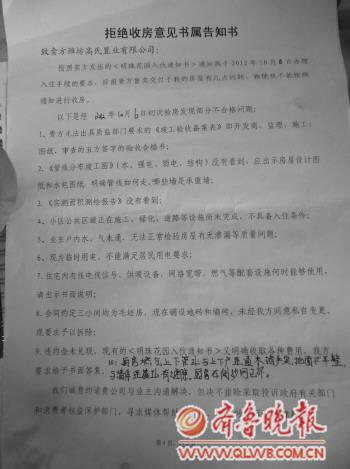 拒绝收房意见书属告知书
致卖方潍坊高氏置业有限公司:
按照卖方发出的《明珠花园入住通知书》通知我于2012年10月6日办理
入住手续的要求,目前贵方售卖交付于我的房屋有几点问题,致使我不能按照
通知进行收房。
以下是经2012年10月6日初次验房发现部分不合格问题:
1、贵方无法出具质监部门要求的《竣工验收备案表》即开发商、监理、施工、
图纸、审查的五方签字的验收合格书;
2、《管线分布竣工图》(水、强电、弱电、结构)没有看到,应出示房屋设计图
纸和水电图纸,明确管线如何走、哪些墙是承重墙;
3、《实测面积测绘报告》没有看到;
4、小区公共区域正在施工,绿化、道路等设施尚未完成,不具备入住条件;
5、业主户内水、气未通,无法正常检验房屋有无渗漏等质量问题;
6、现为临时用电,不能满足居民用电要求;
7、住宅内有线电视信号、供暖设备、网络宽带、燃气等配套设施何时能够使用,
请出示书面说明;
8、合同约定三小间均为毛坯房,现在铺设地砖和墙砖,未经我方同意私自变更,
现要求予以拆除;
9、违约金未兑现,现有的《明珠花园入住通知书》又明确收取各种费用,我方
要求给予书面答复。
我们诚意约请贵公司与业主沟通解决,但决不排除采取投诉政府有关部门
和消费者权益保护部门、寻求媒体帮助
齐鲁晚报
QLWB.COM.CN